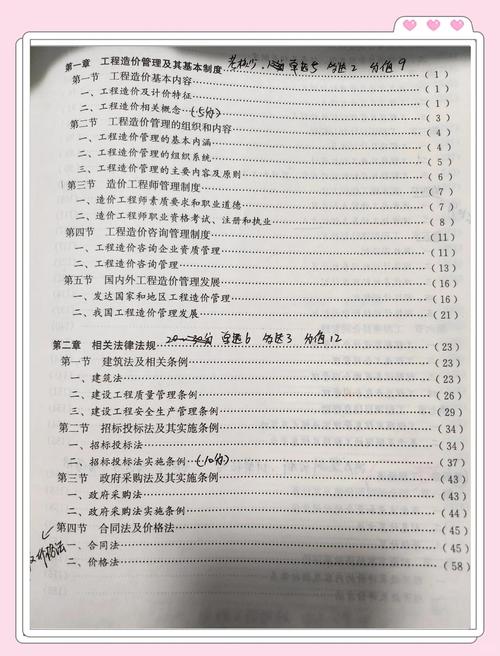 第一章 工程造价管理及其基本制度 单选5 多选2 分值9
第一节 工程造价基本内容……(1)
一、工程造价及计价特征……(1)
二、工程造价相关概念(5分)……(3)
第二节 工程造价管理的组织和内容……(4)
一、工程造价管理的基本内涵……(4)
二、工程造价管理的组织系统……(5)
三、工程造价管理的主要内容及原则……(6)
第三节 造价工程师管理制度……(7)
一、造价工程师素质要求和职业道德……(7)
二、造价工程师职业资格考试、注册和执业……(8)
第四节 工程造价咨询管理制度……(11)
一、工程造价咨询企业资质管理……(11)
二、工程造价咨询管理……(13)
第五节 国内外工程造价管理发展……(16)
一、发达国家和地区工程造价管理……(16)
二、我国工程造价管理发展……(21)
第二章 相关法律法规 单选6 多选3 分值12……(23)
第一节 建筑法及相关条例……(23)
一、建筑法……(23)
二、建设工程质量管理条例……(26)
三、建设工程安全生产管理条例……(29)
第二节 招标投标法及其实施条例……(34)
一、招标投标法……(34)
二、招标投标法实施条例(10分)……(37)
第三节 政府采购法及其实施条例……(43)
一、政府采购法……(43)
二、政府采购法实施条例……(44)
第四节 合同法及价格法……(45)
一、合同法……(45)
二、价格法……(58)
价格法